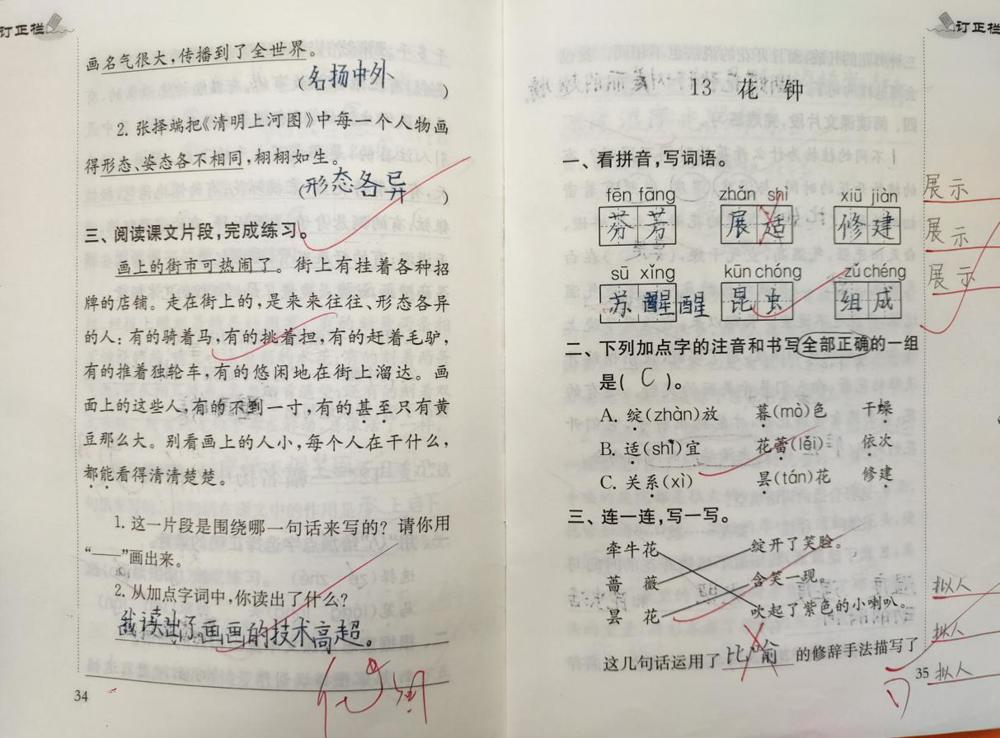 订正栏
画名气很大，传播到了全世界。
(名扬中外)
2. 张择端把《清明上河图》中每一个人物画
得形态、姿态各不相同，栩栩如生。
(形态各异)
三、阅读课文片段，完成练习。
画上的街市可热闹了。街上有挂着各种招
牌的店铺。走在街上的，是来来往往、形态各异
的人：有的骑着马，有的挑着担，有的赶着毛驴，
有的推着独轮车，有的悠闲地在街上溜达。画
面上的这些人，有的不到一寸，有的甚至只有黄
豆那么大。别看画上的人小，每个人在干什么，
都能看得清清楚楚。
1. 这一片段是围绕哪一句话来写的？请你用
“——”画出来。
2. 从加点字词中，你读出了什么？
我读出了画画的技术高超。
34
订正栏
13 花钟
一、看拼音，写词语。
fēn fāng zhǎn shì xiū jiàn
芬芳 展适 修建
sū xǐng kūn chóng zǔ chéng
苏醒醒 昆虫 组成
展示
展示
展示
二、下列加点字的注音和书写全部正确的一组
是( C )。
A. 绽(zhàn)放 暮(mò)色 干燥
B. 适(shì)宜 花蕾(lěi) 依次
C. 关系(xì) 昙(tán)花 修建
三、连一连，写一写。
牵牛花 绽开了笑脸。
蔷薇 含笑一现。
昙花 吹起了紫色的小喇叭。
这几句话运用了比喻的修辞手法描写了
拟人
拟人
拟人
35